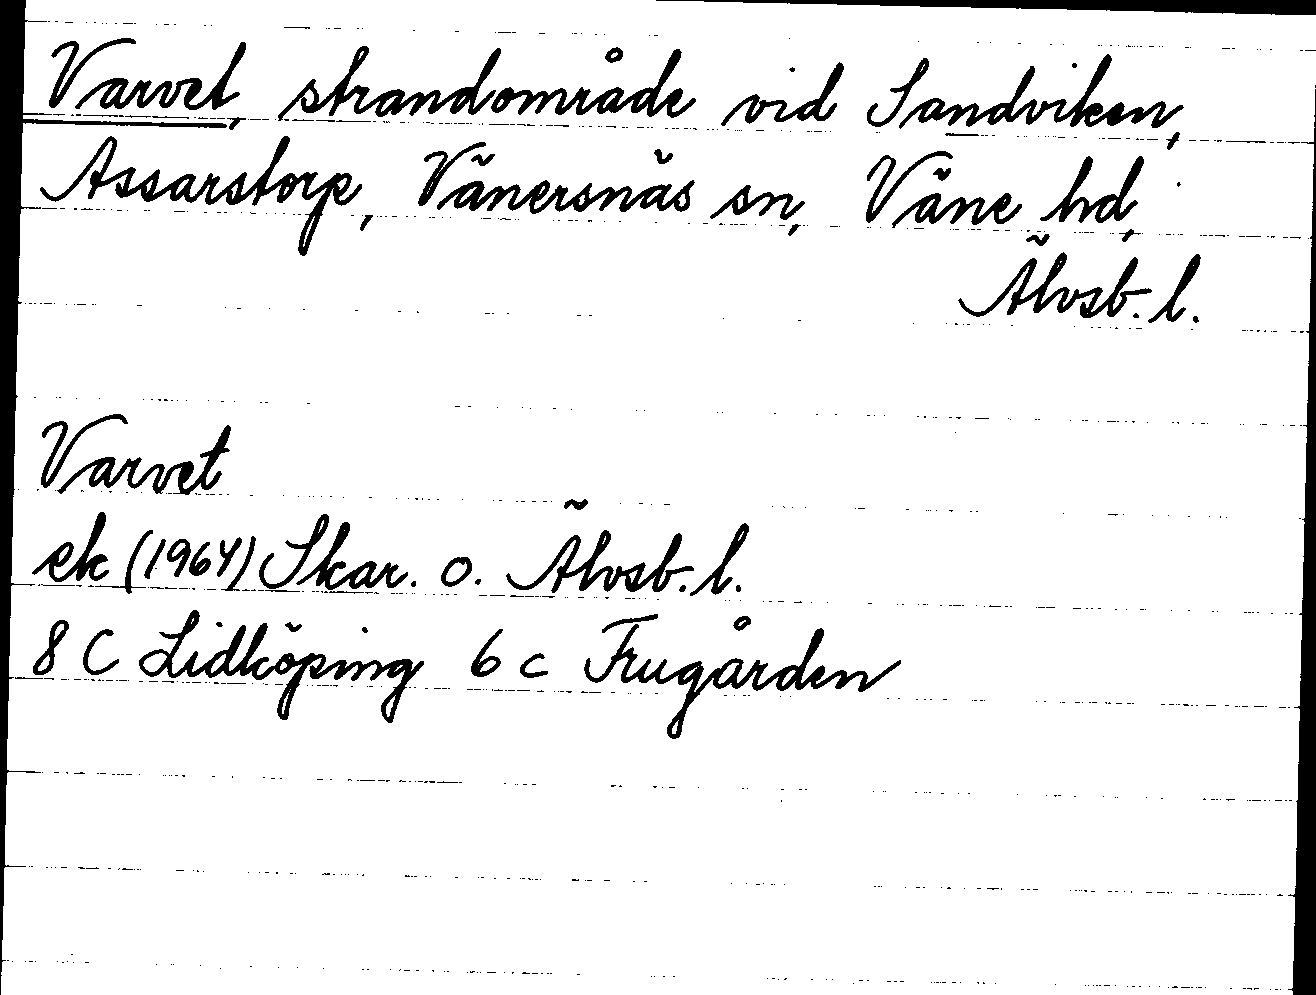 Varvet, strandområde vid Sandviken,
Assarstorp, Vänersnäs sn, Väne hd,
Älvsb. l.
Varvet
ek (1964) Skar. o. Älvsb. l.
8 C Lidköping 6 c Frugården